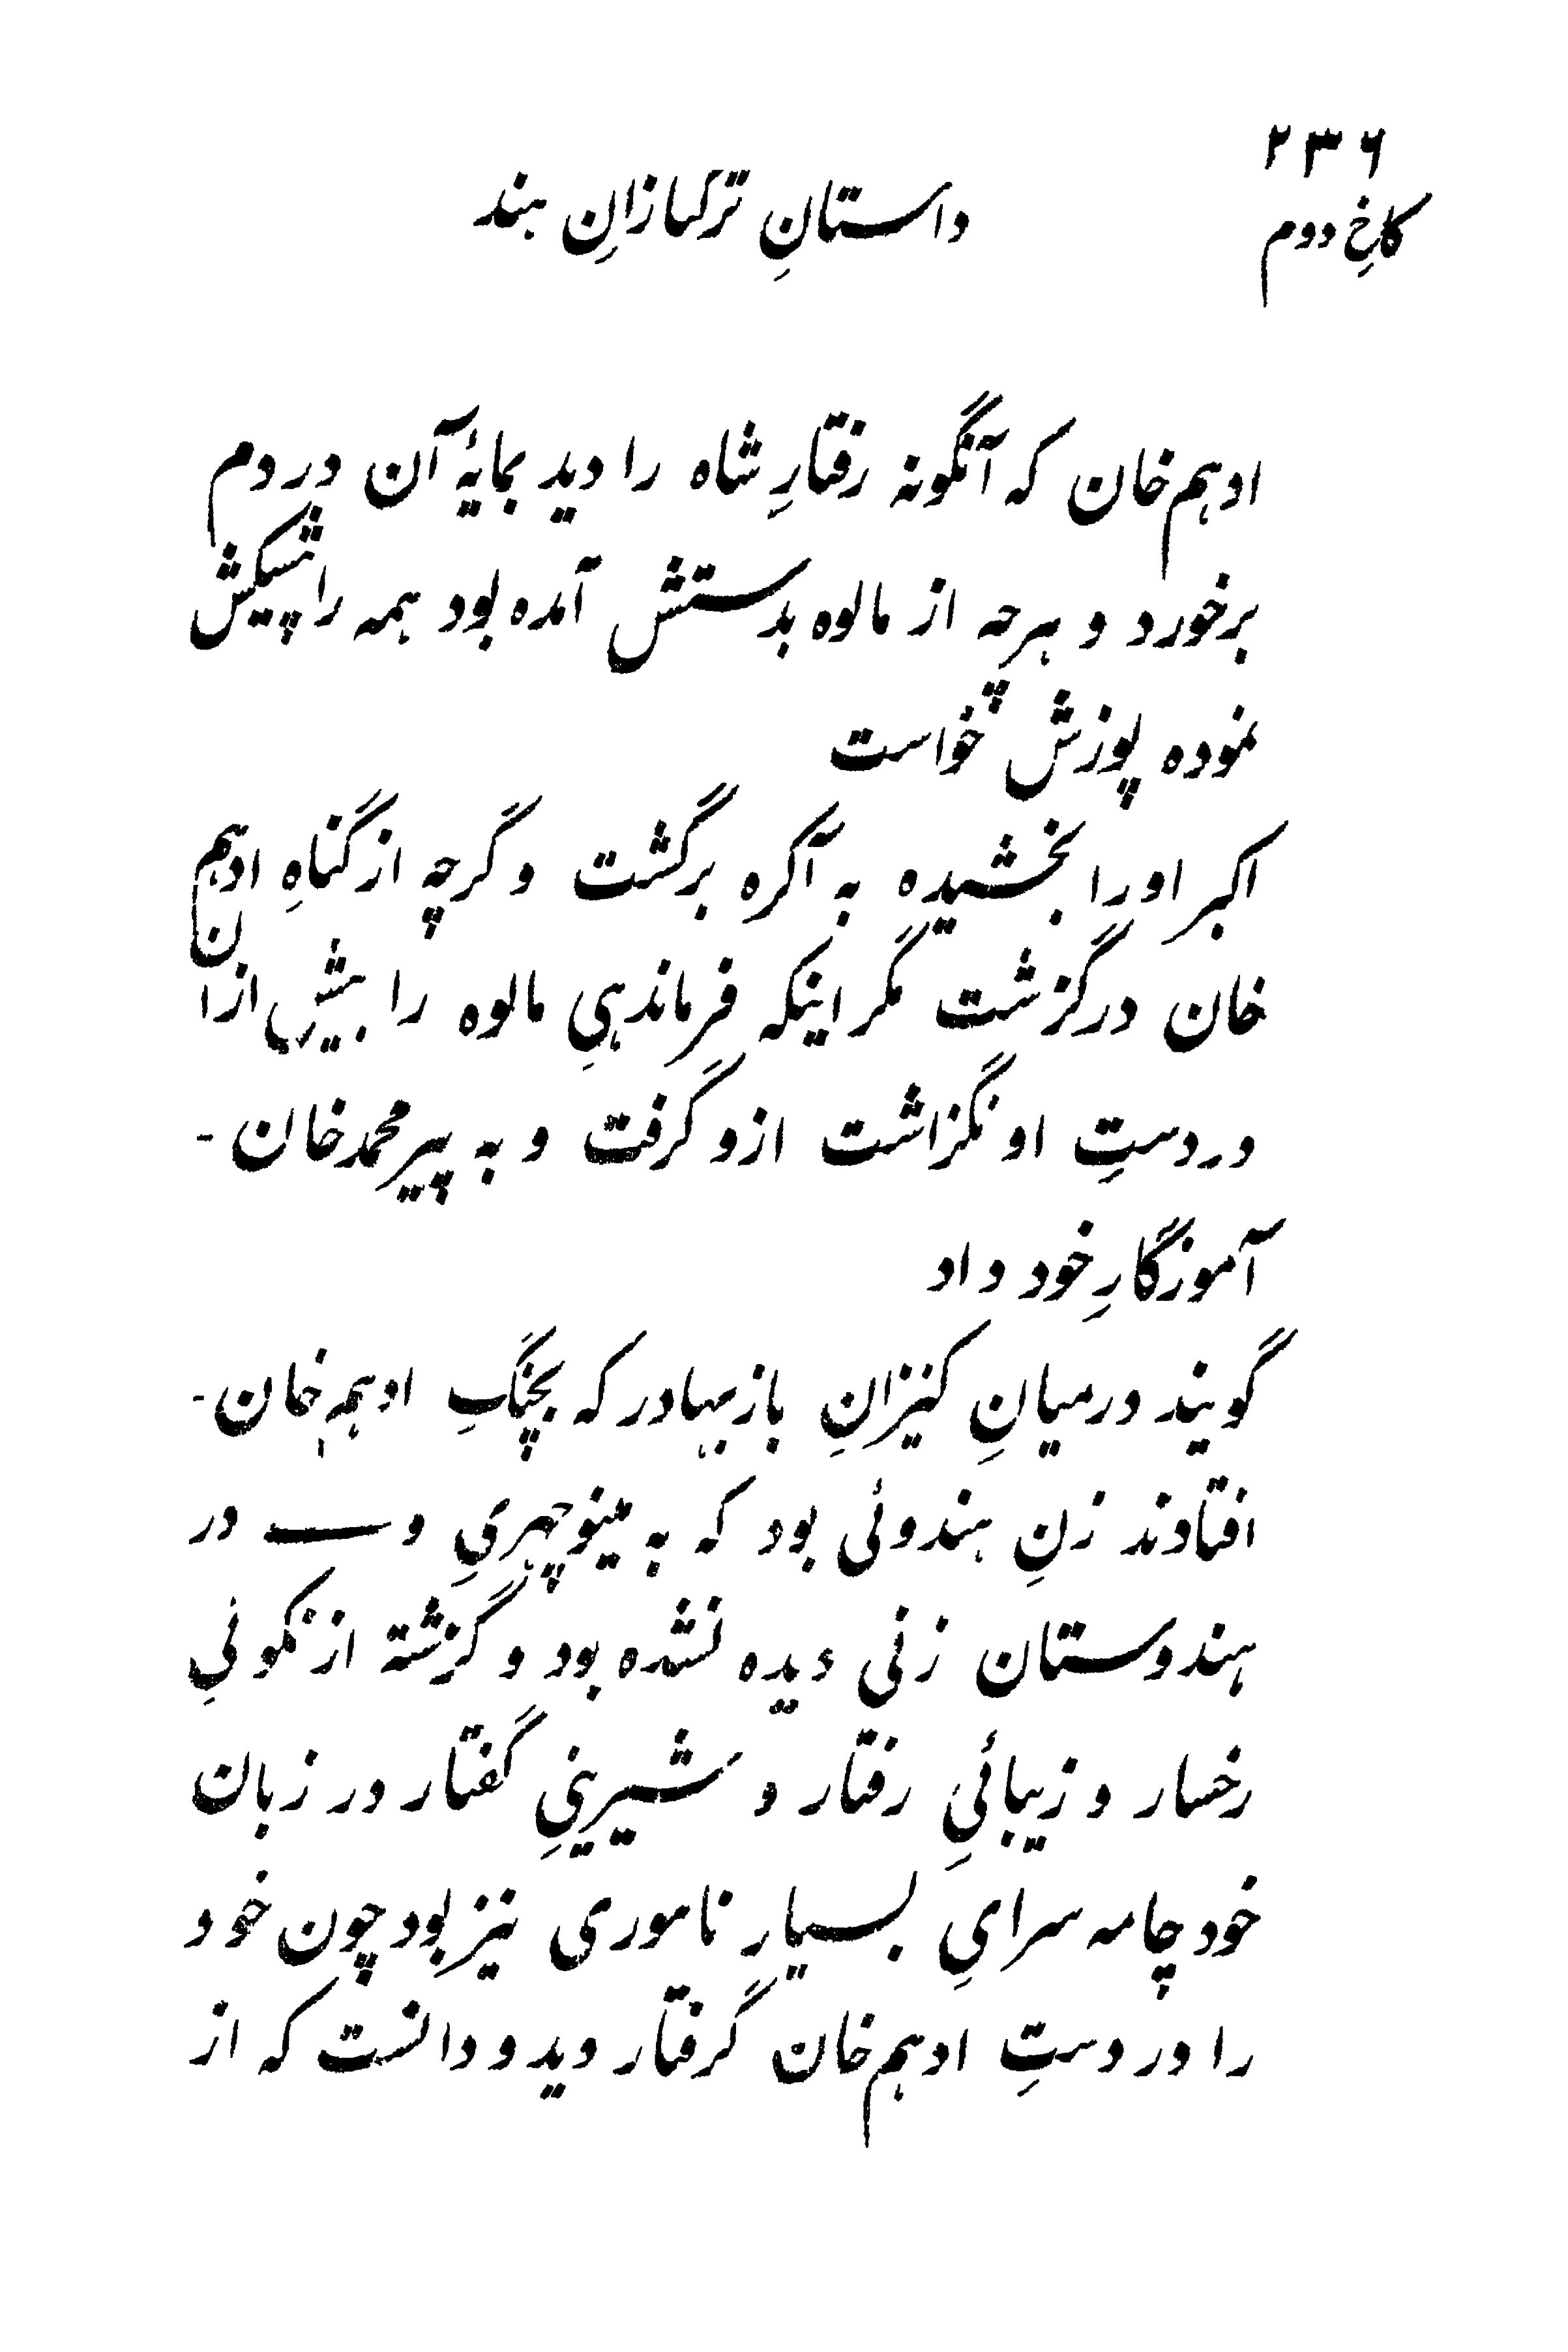 ۲۳۶
کاخِ دوم
داستانِ ترکتازانِ هند
ادهم خان که آنگونه رفتارِ شاه را دید بمایهٔ آن در دم
برخورد و هرچه از مالوه بدستش آمده بود همه را پیشکش
نموده پوزش خواست
اکبر او را بخشیده به آگره برگشت و گرچه از گناهِ ادهم
خان درگزشت مگر اینکه فرماندهیِ مالوه را بیش ازان
در دستِ او نگزاشت ازو گرفت و به پیر محمد خان -
آموزگارِ خود داد
گویند درمیانِ کنیزانِ بازبهادر که بچنگِ ادهم خان -
افتادند زنِ هندوئی بود که به مینوچهریِ وے در
هندوستان زنی دیده نشده بود و گزشته از نکوئیِ
رخسار و زیبائیِ رفتار و شیرینیِ گفتار در زبان
خود چامه سرایِ بسیارِ ناموری نیز بود چون خود
را در دستِ ادهم خان گرفتار دید و دانست که از